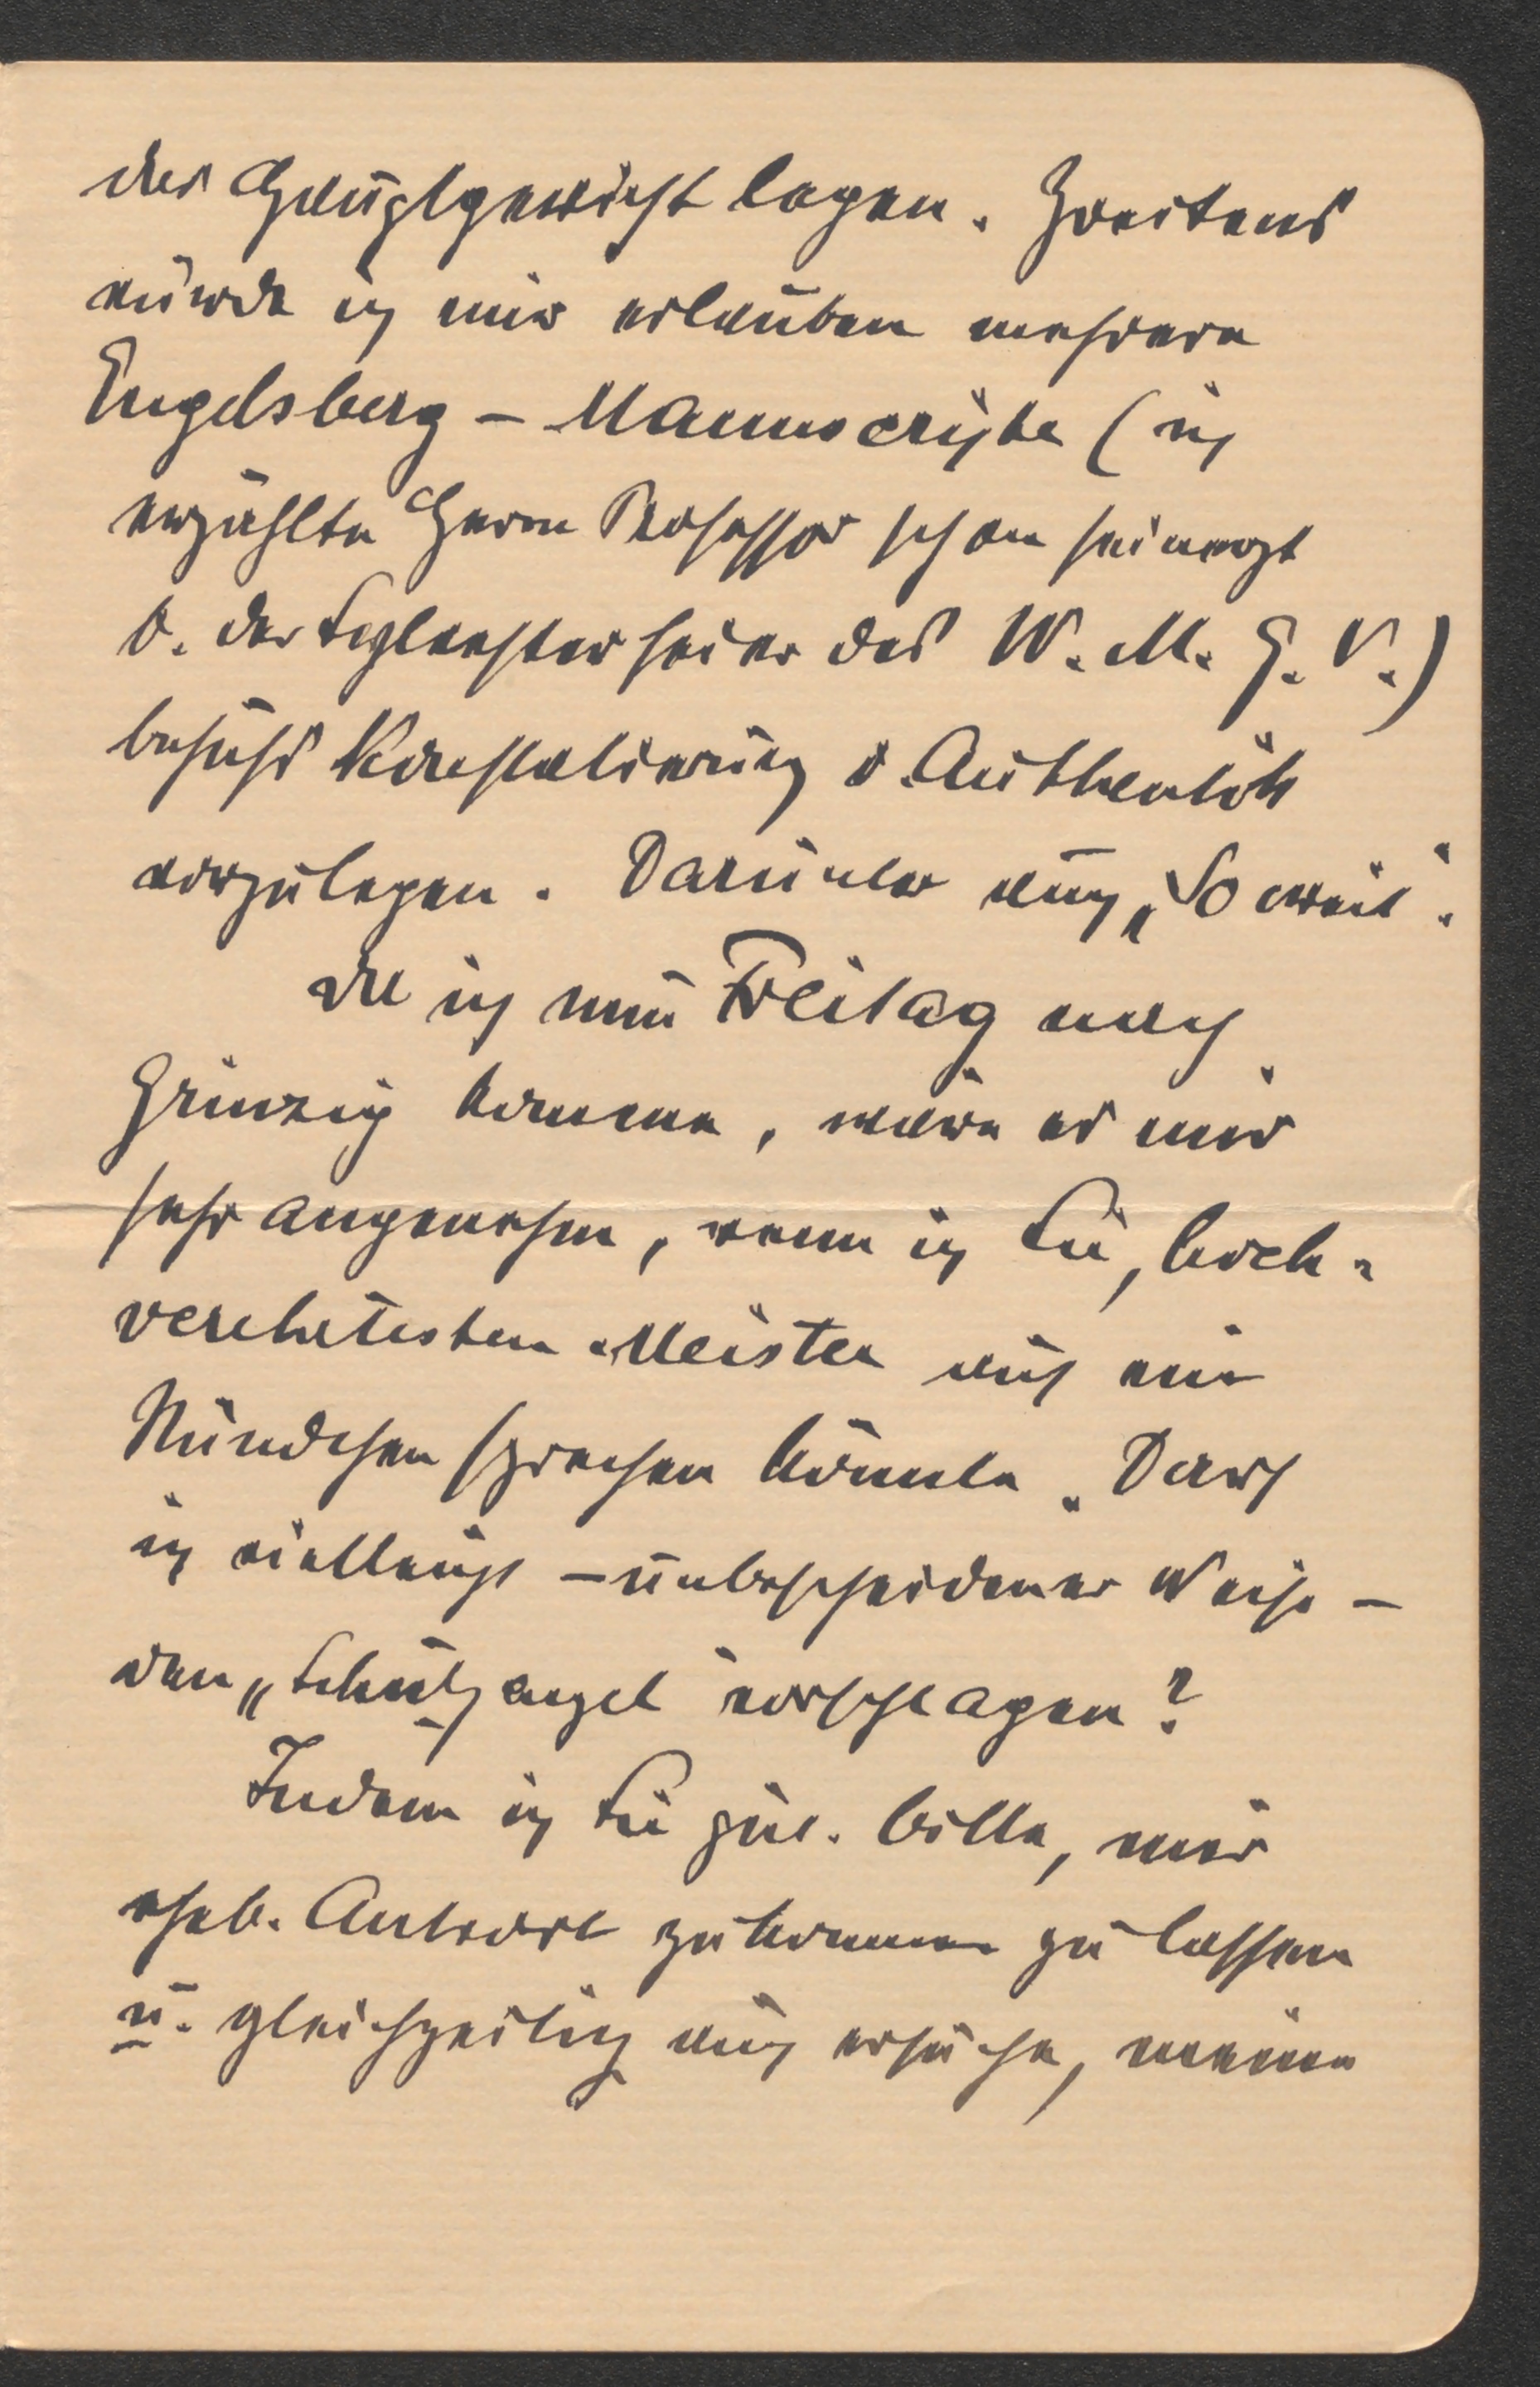 das Hauptgewicht legen. Zweitens
würde ich mir erlauben mehrere
Engelsberg – Manuscripte (ich
erzählte Herrn Professor schon seinerzt
b. der Sylvesterfeier des W. M. G. V.)
behufs Konstatierung d. Authentik
vorzulegen. Darunter auch „So weit".
Da ich nun Freitag nach
Grinzig komme, wäre es mir
sehr angenehm, wenn ich Sie, hoch-
verehrtester Meister auf ein
Stündchen sprechen könnte. Darf
ich vielleicht – unbescheidener Weise –
den „Schutzengel vorschlagen?
Indem ich Sie güt. bitte, mir
eheb. Antwort zukommen zu lassen
u. gleichzeitig auch ersuche, meine